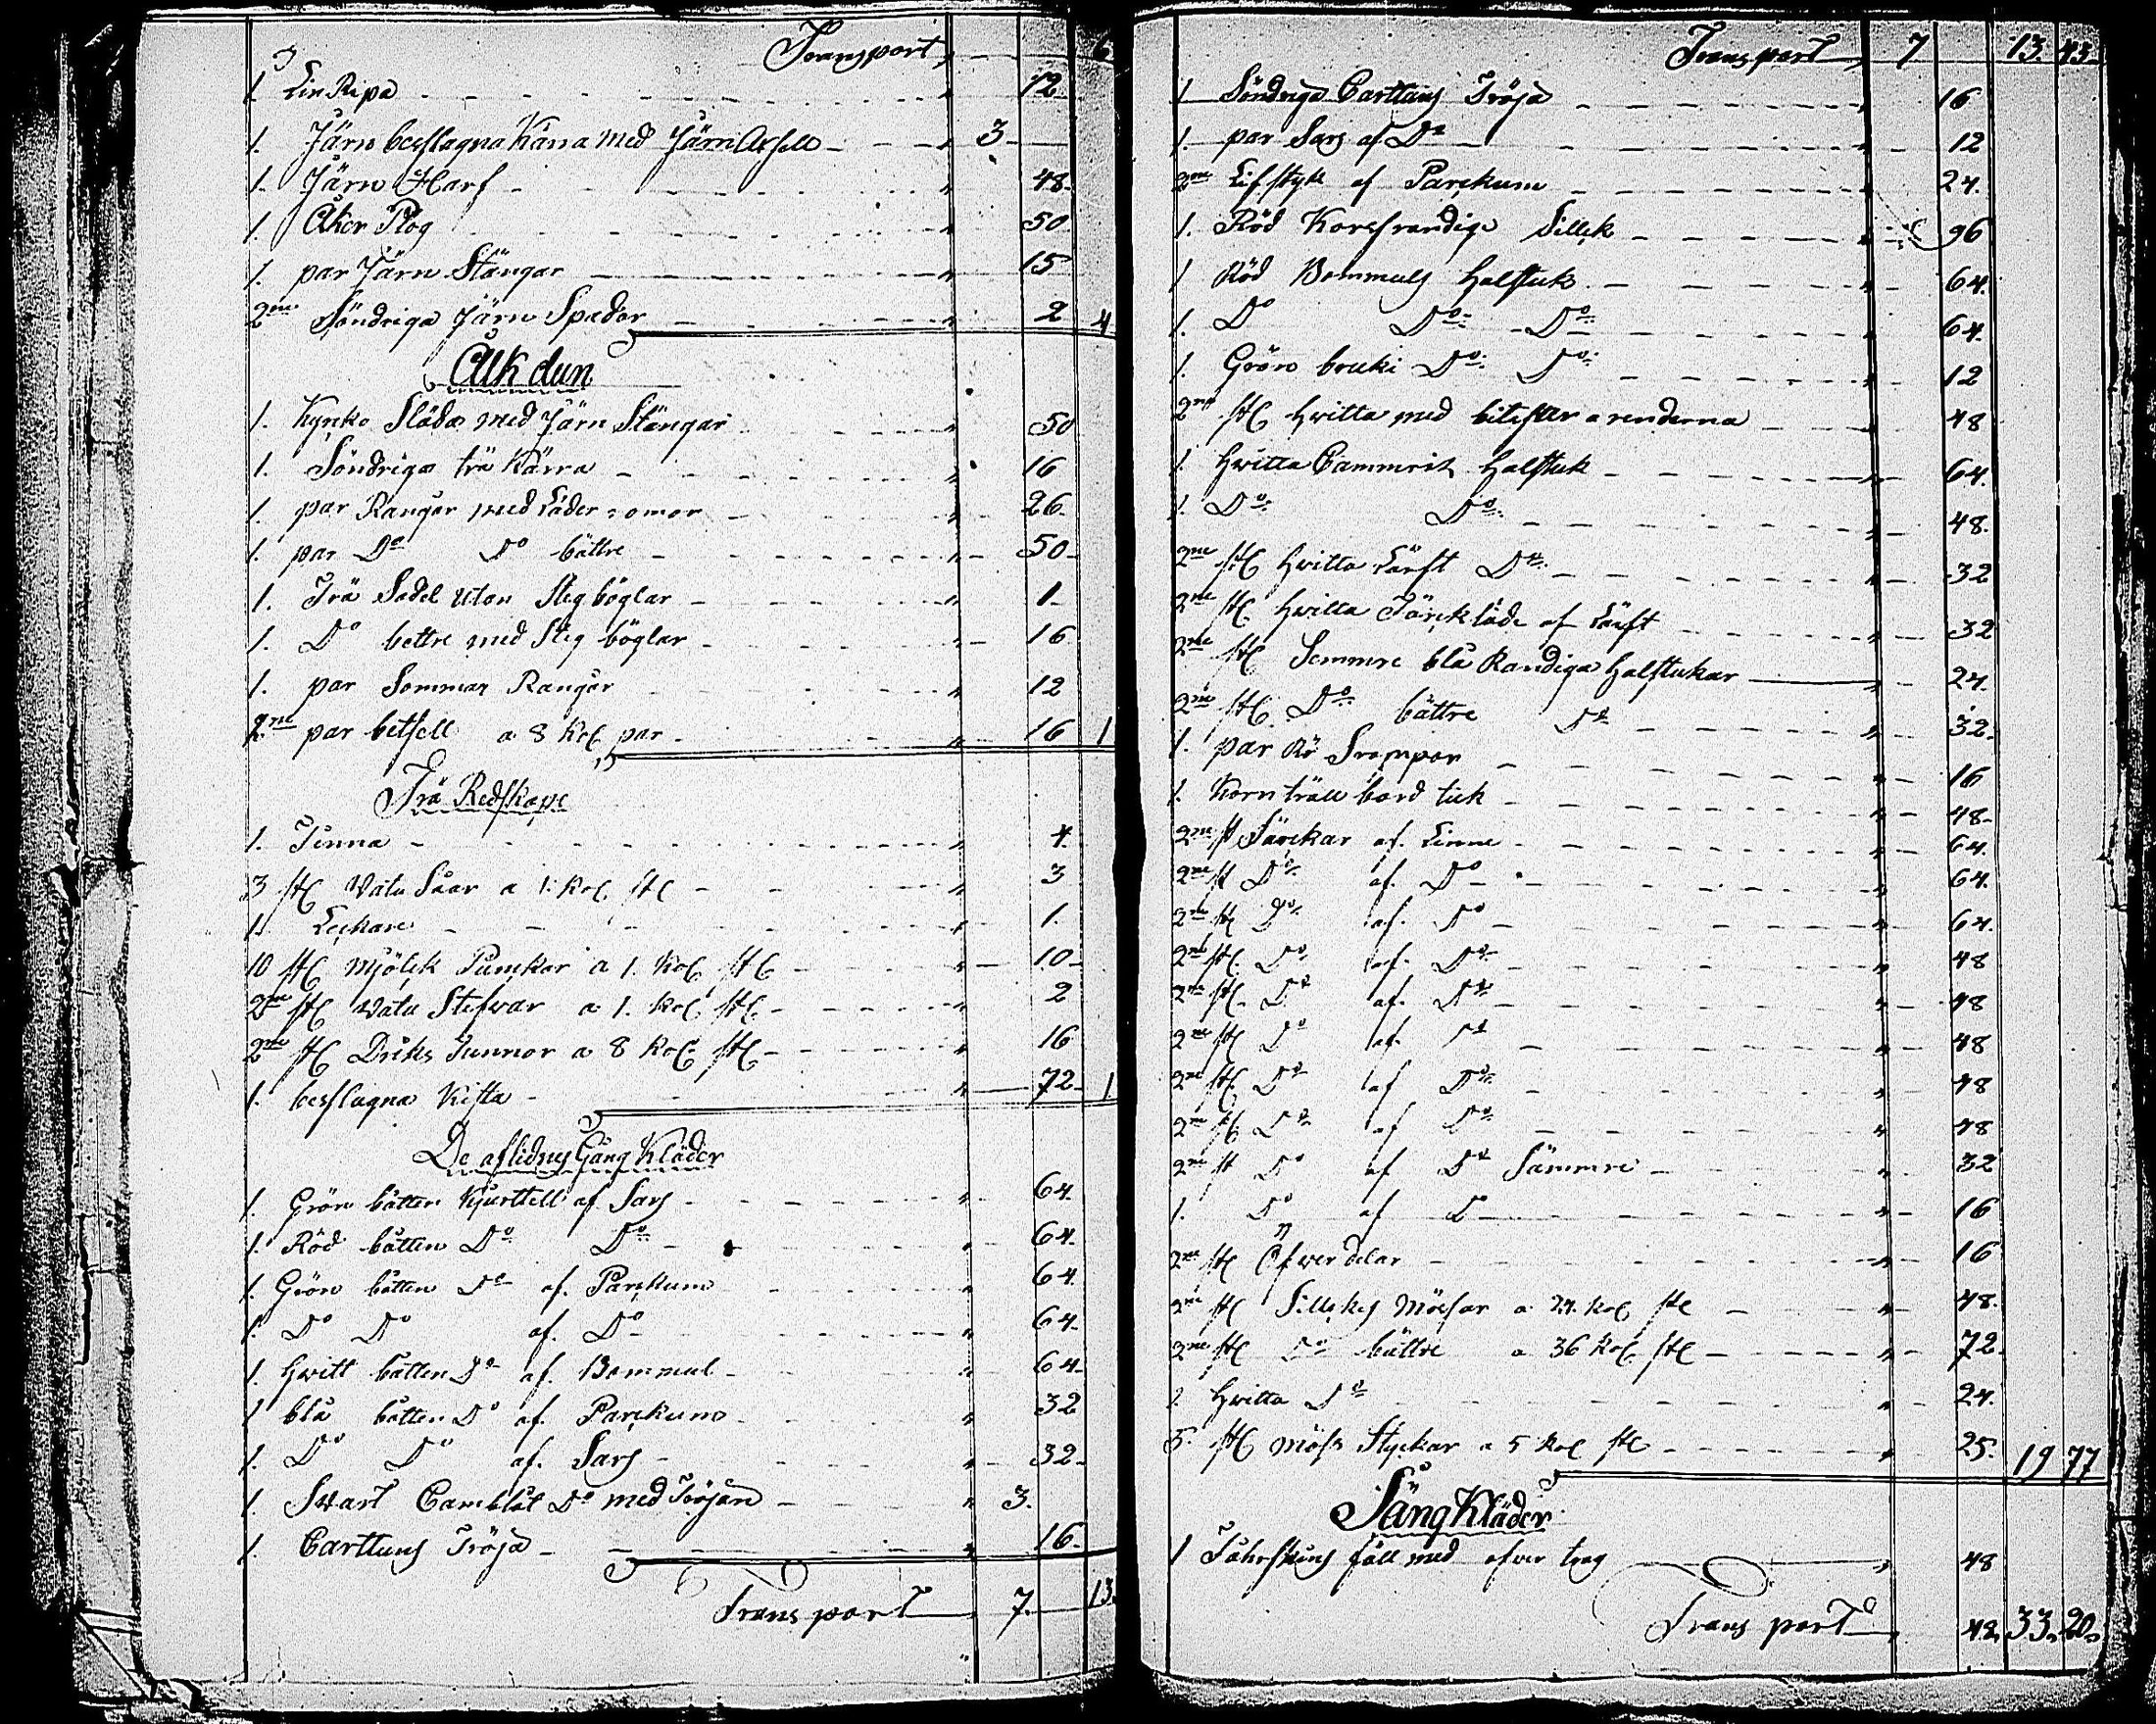 Transport 6
1 Lin Ripa 12
1. Järn beslagna Kärra med Järn Axsell 3
1. Järn Harf 48.
1. Åker Plog 50
1. par Järn Stängar 15
2ne Söndriga Järn Spador 2 4
Åk dun
1. Kyrko Släda med Järn Stängar 50
1. Söndriga trä Kärra 16
1. par Rangar med Läder omor 26.
1. par Do Do bättre 50
1. Trä Sadel utan Steg böglar 1
1. Do bettre med Steg böglar 16
1. par Sommar Rangar 12
2ne par betsell a 8 Kol par 16 1
Trä Redskape
1. Tinna 4.
3 stC Vatu Såar a 1. Kol. stC 3
1. Leckare 1.
10 stC Mjölck Punckar a 1. Kol. stC 10
2ne stC Vatu Stefvar a 1. Kol. stC 2
2ne stC Driks Tunnor a 8 Kol. stC 16
1. beslagna Kista 72 1
De aflidnes Gång Kläder
1. Grön båtten Kjurttell af Sars 64.
1. Röd båtten Do Do 64.
1. Grön båtten Do af. Parckum 64.
1. Do Do af. Do 64
1. Hvitt båtten Do af. Bommul 64
1 blå båtten Do af Parckum 32
1. Do Do af. Sars 32
1. Svart Camblåt Do med Tröjan 3.
1. Carttuns Tröja 16.
Transport 7. 13.
Transport 7 13. 43
1 Söndriga Carttuns Tröja 16
1. par Sars af Do 12
2ne Lifstyk af Parckum 24.
1. Röd Korssrandige Sillek 96
1 Röd Bommuls Halstuk 64.
1. Do Do Do 64.
1. Grön bruki Do Do 12
2ne stC Hvitta med renderna 48
1. Hvitta Cammrik Halstuk 64.
1. Do Do 48.
2ne stC Hvitta Lärft Do 32
2ne stC Hvitta Törekläde af Lärft 32
2ne stC Semmre blå Randiga Halstukar 24.
2ne stC Do bättre Do 32.
1. par Rö Srompor 16
1. Korn träll bord tuk 48
2ne st Särckar af. Linne 64.
2ne st Do af. Do 64.
2ne st Do af. Do 64.
2ne stC Do af. Do 48
2ne stC Do af. Do 48
2ne stC Do af. Do 48
2ne stC Do af Do 48
2ne stC Do af Do 48
2ne st Do af Do Sämmre 32
1. Do af Do 16
2ne stC Öfwer delar 16
2ne stC Sillckes Mössor a 24. Kol stC 48.
2ne stC Do bättre a 36 Kol stC 72
1. Hvitta Do 24.
5. stC Möss Styckar a 5 Kol stC 25. 19 77
Säng Kläder
1 Fåhrskins fäll med ofver trag 48
Transport 48. 33. 20.